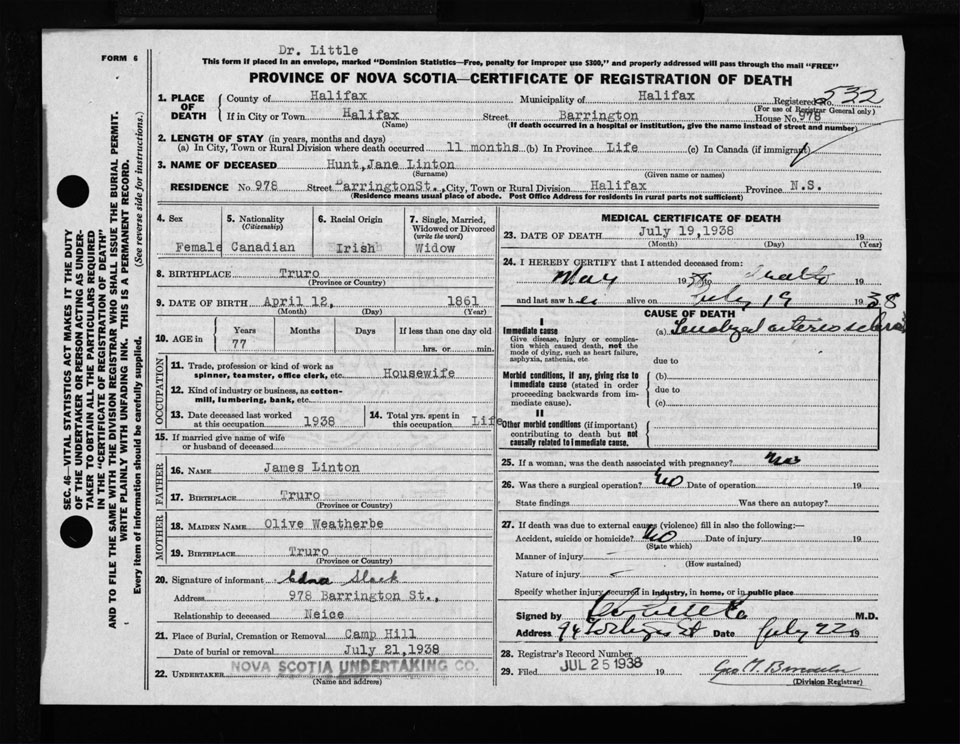 Dr. Little
FORM 6
This form if placed in an envelope, marked "Dominion Statistics—Free, penalty for improper use $300," and properly addressed will pass through the mail "FREE"
PROVINCE OF NOVA SCOTIA—CERTIFICATE OF REGISTRATION OF DEATH
1. PLACE OF DEATH
County of Halifax Municipality of Halifax Registered No. 532
(For use of Registrar General only)
If in City or Town Halifax Street Barrington House No. 978
(Name) (If death occurred in a hospital or institution, give the name instead of street and number)
2. LENGTH OF STAY (in years, months and days)
(a) In City, Town or Rural Division where death occurred 11 months (b) In Province Life (c) In Canada (if immigrant)
3. NAME OF DECEASED Hunt,Jane Linton
(Surname) (Given name or names)
RESIDENCE No. 978 Street BarringtonSt., City, Town or Rural Division Halifax Province N.S.
(Residence means usual place of abode. Post Office Address for residents in rural parts not sufficient)
4. Sex 5. Nationality (Citizenship) 6. Racial Origin 7. Single, Married, Widowed or Divorced (write the word)
Female Canadian Irish Widow
8. BIRTHPLACE Truro
(Province or Country)
9. DATE OF BIRTH April 12, 1861
(Month) (Day) (Year)
10. AGE in Years Months Days If less than one day old
77 hrs. or min.
OCCUPATION
11. Trade, profession or kind of work as spinner, teamster, office clerk, etc. Housewife
12. Kind of industry or business, as cotton-mill, lumbering, bank, etc.
13. Date deceased last worked at this occupation 1938 14. Total yrs. spent in this occupation Life
15. If married give name of wife or husband of deceased
FATHER
16. NAME James Linton
17. BIRTHPLACE Truro
(Province or Country)
MOTHER
18. MAIDEN NAME Olive Weatherbe
19. BIRTHPLACE Truro
(Province or Country)
20. Signature of informant Edna Slack
Address 978 Barrington St.,
Relationship to deceased Neice
21. Place of Burial, Cremation or Removal Camp Hill
Date of burial or removal July 21,1938
22. UNDERTAKER NOVA SCOTIA UNDERTAKING CO.
(Name and address)
MEDICAL CERTIFICATE OF DEATH
23. DATE OF DEATH July 19,1938 19
(Month) (Day) (Year)
24. I HEREBY CERTIFY that I attended deceased from:
May 1938 to death 19
and last saw her alive on July 19 1938
CAUSE OF DEATH
I
Immediate cause (a)
Give disease, injury or complication which caused death, not the mode of dying, such as heart failure, asphyxia, asthenia, etc
due to
Morbid conditions, if any, giving rise to immediate cause (stated in order proceeding backwards from immediate cause).
(b)
due to
(c)
II
Other morbid conditions (if important) contributing to death but not causally related to immediate cause.
25. If a woman, was the death associated with pregnancy? No
26. Was there a surgical operation? No Date of operation 19
State findings Was there an autopsy?
27. If death was due to external causes (violence) fill in also the following:—
Accident, suicide or homicide? No Date of injury 19
(State which)
Manner of injury
(How sustained)
Nature of injury
Specify whether injury occurred in industry, in home, or in public place
Signed by M.D.
Address 94 St Date July 22 19
28. Registrar's Record Number
29. Filed JUL 25 1938 19
(Division Registrar)
SEC. 46—VITAL STATISTICS ACT MAKES IT THE DUTY
OF THE UNDERTAKER OR PERSON ACTING AS UNDER-
TAKER TO OBTAIN ALL THE PARTICULARS REQUIRED
IN THE "CERTIFICATE OF REGISTRATION OF DEATH"
AND TO FILE THE SAME WITH THE DIVISION REGISTRAR WHO SHALL ISSUE THE BURIAL PERMIT.
WRITE PLAINLY WITH UNFADING INK. THIS IS A PERMANENT RECORD.
Every item of information should be carefully supplied. (See reverse side for instructions.)